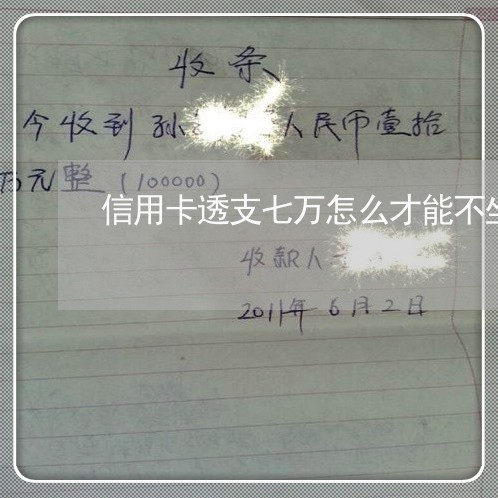 收条
今收到孙 人民币壹拾
万元整(100000)
信用卡透支七万怎么才能不坐
收款人
2011年6月2日